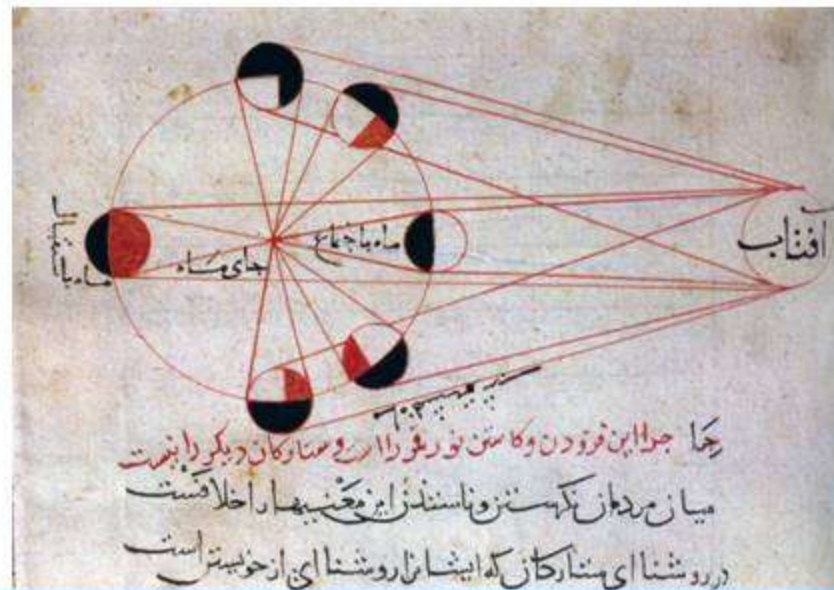 افتاب
ماه باجتماع
جای ماه
ماه باستقبال
جرا این فزودن و کاستن نور قمر را است و ستارکان دیکر را نیست
میان مردمان نکرستن و ناسندن این معنیها را خلافست
در روشنا ای ستارکان که ایشانرا روشنا ای از خویشتن است